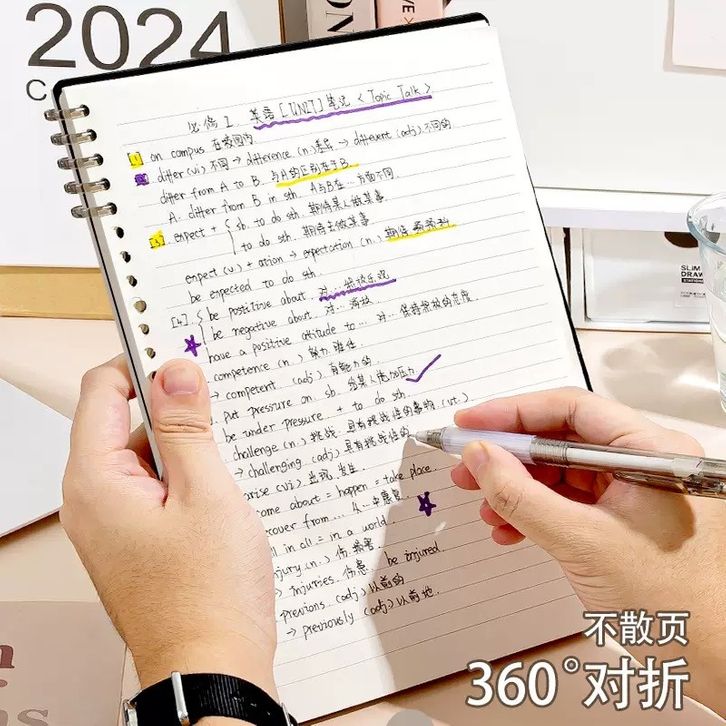 2024
必修1 英语[UNIT]笔记<Topic Talk>
[1] on campus 在校园内
differ(vi)不同→difference(n.)差异→different(adj)不同的
differ from A to B. 与A的区别在于B.
A. differ from B in sth A与B在...方面不同.
[3]. expect + { sb. to do sth. 期待某人做某事.
to do sth. 期待去做某事.
expect(v)+ation→expectation(n.)期待
be expected to do sth.
[4]. be postitive about. 对...
be negative about. 对...
have a positive attitude to... 对...保持积极的态度.
competence(n.) 能力
→competent. (adj) 有能力的.
put pressure on. sb. 给某人施加压力
be under pressure + to do sth.
challenge(n.)挑战.具有挑战性的事物(vt.)
→challenging(adj)具有挑战性的
arise(vi)出现.发生
come about = happen = take place.
cover from...
all in all = in a world.
jury.(n.) 伤.损害.
→injuries. 伤患. be injured.
previous (adj)以前的
→previously (adj)以前地.
SLIM
DRAW
不散页
360°对折